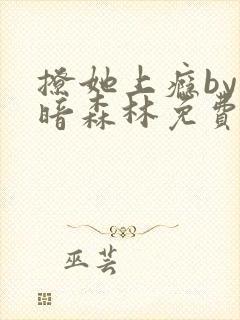 撩她上瘾by
暗森林免费
巫芸